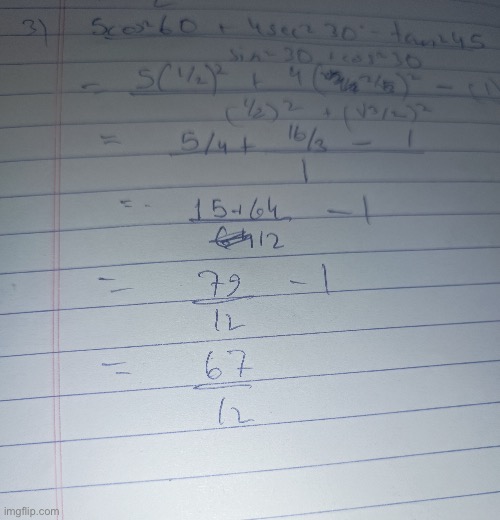 3) 5cos²60 + 4sec²30 - tan²45
sin²30 + cos²30
= 5(1/2)² + 4(2/√3)² - (1)
(1/2)² + (√3/2)²
= 5/4 + 16/3 - 1
1
= 15+64 - 1
12
= 79 - 1
12
= 67
12
imgflip.com